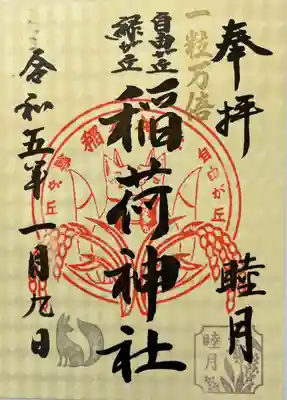 奉拝
睦月
一粒万倍
自由が丘
緑が丘
稲荷神社
令和五年一月九日
自由が丘
睦月